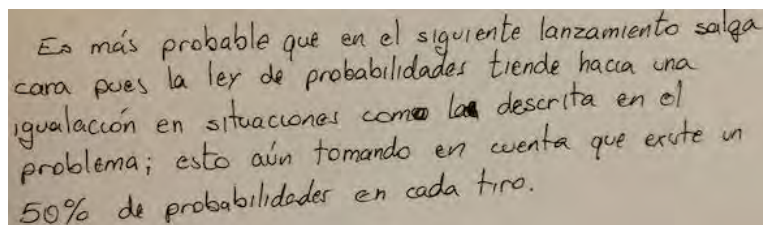 Es más probable que en el siguiente lanzamiento salga
cara pues la ley de probabilidades tiende hacia una
igualación en situaciones como la descrita en el
problema; esto aún tomando en cuenta que existe un
50% de probabilidades en cada tiro.